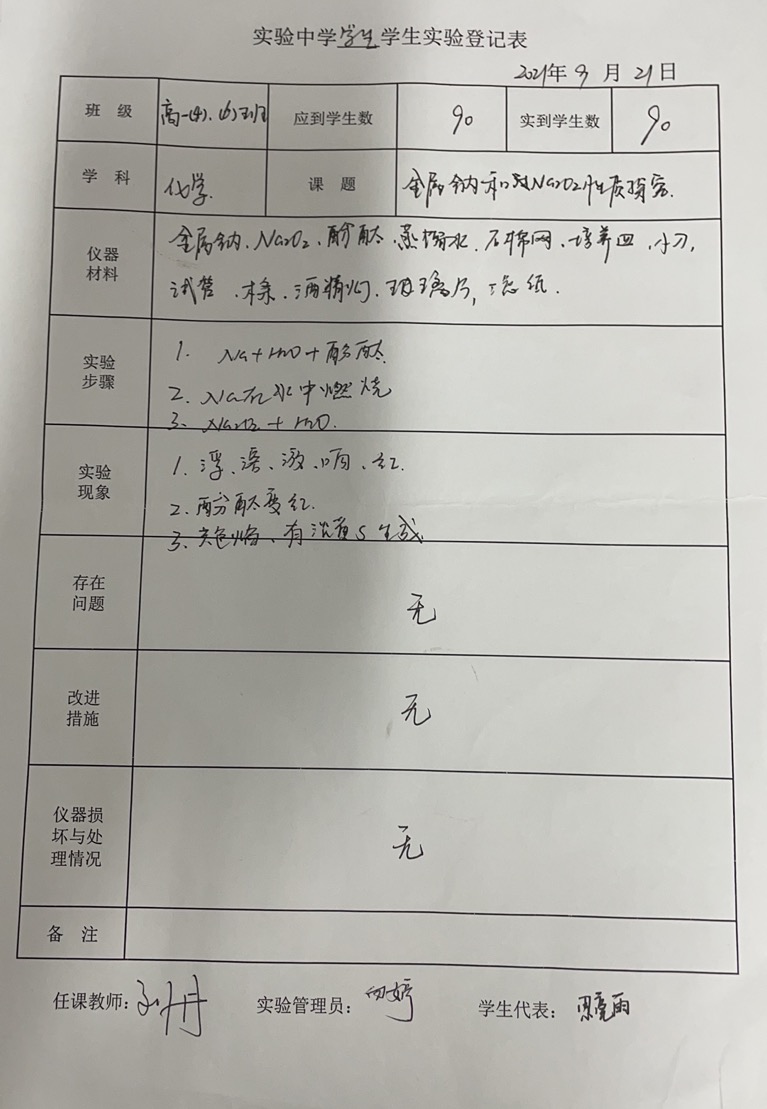 实验中学学生学生实验登记表
2021年9月21日
班 级 高一(4)、(6)班 应到学生数 90 实到学生数 90
学 科 化学. 课 题 金属钠和Na2O2性质探究.
仪器材料 金属钠、Na2O2、酚酞、蒸馏水、石棉网、培养皿、小刀,
试管、木条、酒精灯、玻璃片, 滤纸.
实验步骤 1. Na+H2O+酚酞
2. Na在水中燃烧
3. Na2O2+H2O.
实验现象 1. 浮、溶、游、响、红.
2. 酚酞变红.
3. 黄色火焰、有 生成
存在问题 无
改进措施 无
仪器损坏与处理情况 无
备 注
任课教师: 实验管理员: 学生代表: